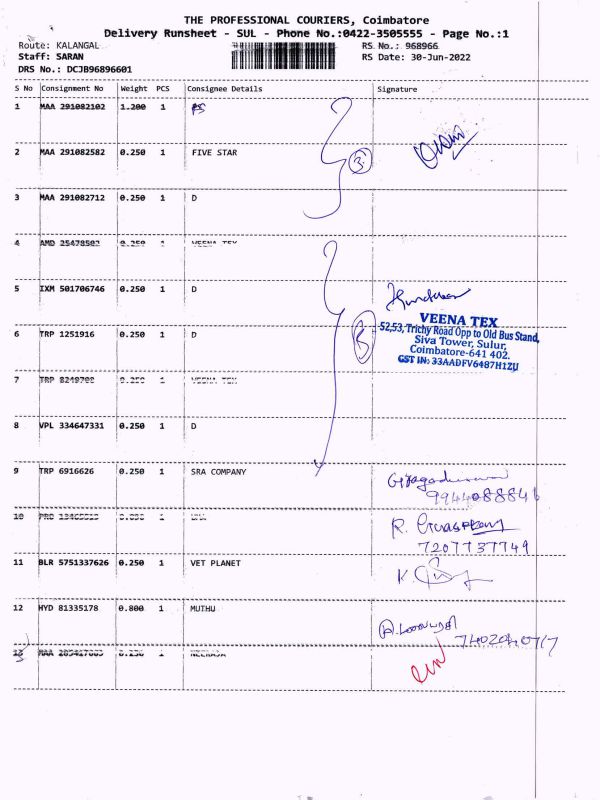 THE PROFESSIONAL COURIERS, Coimbatore
Delivery Runsheet - SUL - Phone No.:0422-3505555 - Page No.:1
Route: KALANGAL RS No.: 968966
Staff: SARAN RS Date: 30-Jun-2022
DRS No.: DCJB96896601
S No Consignment No Weight PCS Consignee Details Signature
1 MAA 291082102 1.200 1
2 MAA 291082582 0.250 1 FIVE STAR
3
3 MAA 291082712 0.250 1 D
4 AMD 25478502 0.250 1 VEENA TEX
5 IXM 501706746 0.250 1 D
VEENA TEX
52,53, Trichy Road Opp to Old Bus Stand,
Siva Tower, Sulur,
Coimbatore-641 402.
GST IN: 33AADFV6487H1ZU
6 TRP 1251916 0.250 1 D
5
7 TRP 0.250 1 VEENA TEX
8 VPL 334647331 0.250 1 D
9 TRP 6916626 0.250 1 SRA COMPANY
9944088841
10 1
R.
7207737749
11 BLR 5751337626 0.250 1 VET PLANET
K.
12 HYD 81335178 0.800 1 MUTHU
7402040717
13 MAA 1